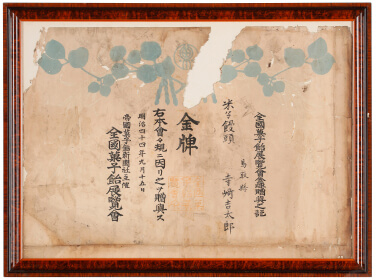 全國菓子飴展覽會褒賞之記
鳥取縣
米子饅頭 寺﨑吉太郎
金牌
右本會々規ニ因リ之ヲ贈與ス
明治四十四年九月十五日
帝國菓子飴新聞社主催
全國菓子飴展覽會